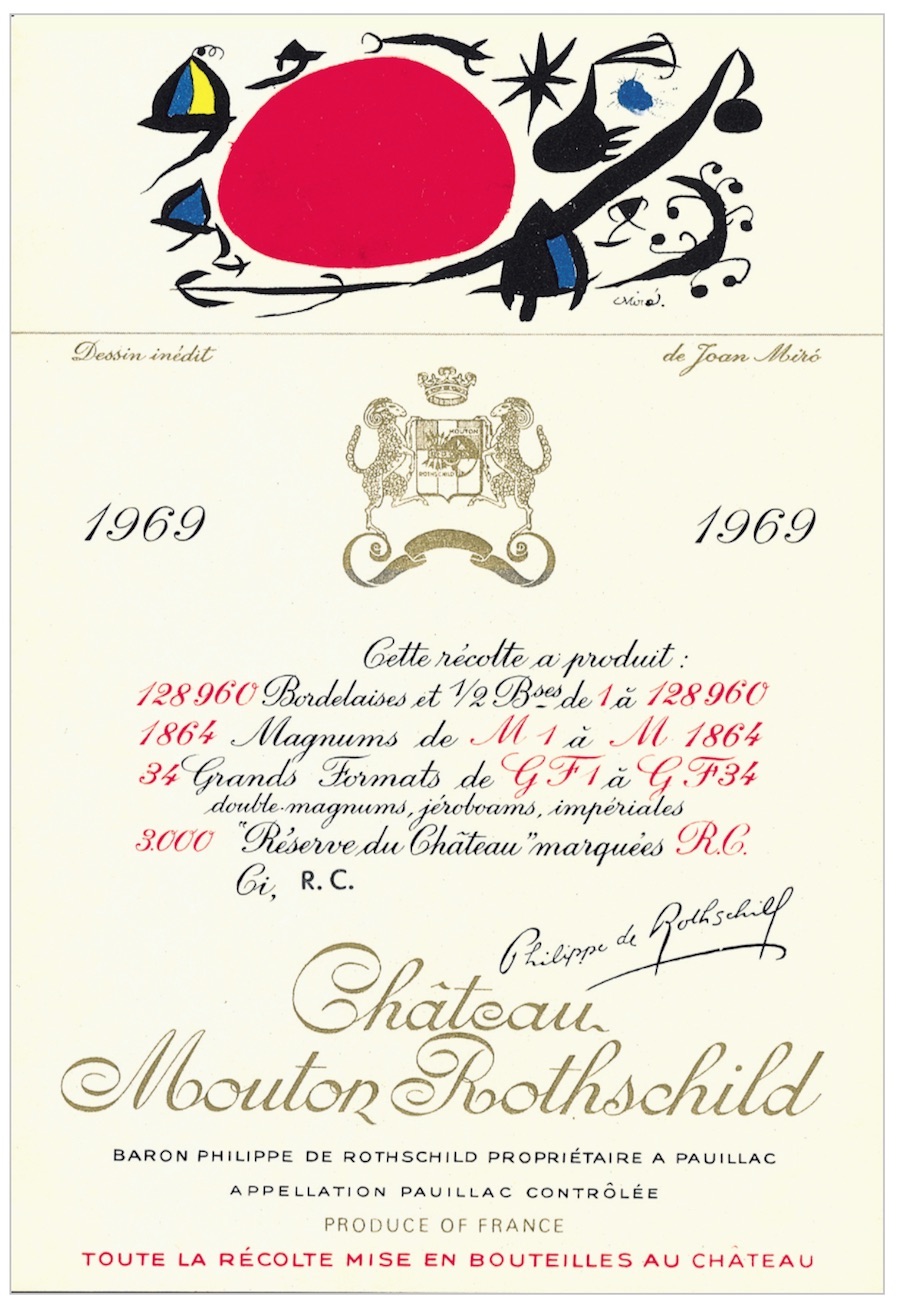 Miró.
Dessin inédit de Joan Miró
MOUTON
ROTHSCHILD
1969 1969
Cette récolte a produit :
128960 Bordelaises et 1/2 Bses de 1 à 128960
1864 Magnums de M 1 à M 1864
34 Grands Formats de G F 1 à G F 34
double-magnums, jéroboams, impériales
3.000 "Réserve du Château" marquées R.C.
Ci, R. C.
Philippe de Rothschild
Château
Mouton Rothschild
BARON PHILIPPE DE ROTHSCHILD PROPRIÉTAIRE A PAUILLAC
APPELLATION PAUILLAC CONTRÔLÉE
PRODUCE OF FRANCE
TOUTE LA RÉCOLTE MISE EN BOUTEILLES AU CHÂTEAU